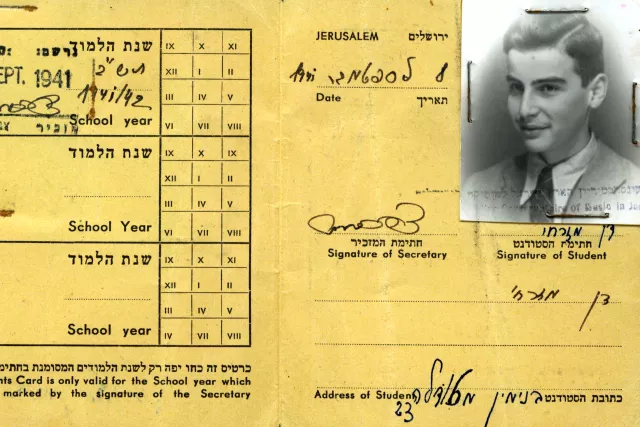 נרשם:
SEPT. 1941
שנת הלמוד
תש"ב
1941/42
School year
IX X XI
XII I II
III IV V
VI VII VIII
שנת הלמוד
School Year
IX X IX
XII I II
III IV V
VI VII VIII
שנת הלמוד
School year
IX X XI
XII I II
III IV V
IV VII VIII
כרטיס זה כחו יפה רק לשנת הלמודים המסומנת בחתימת
nts Card is only valid for the School year which
marked by the signature of the Secretary
JERUSALEM ירושלים
8 לספטמבר 1941
Date תאריך
of Music in Je
חתימת המזכיר
Signature of Secretary
דן מזרחי
חתימת הסטודנט
Signature of Student
דן מזרחי
Address of Student בנימין מטודלה כתובת הסטודנט
23